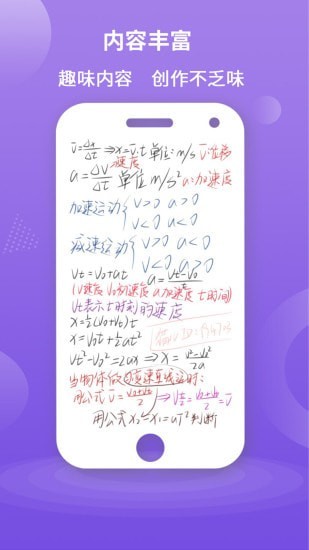 内容丰富
趣味内容 创作不乏味
v̄=Δx/Δt ⇒ x=v̄·t 单位: m/s v̄:位移
速度
a=ΔV/Δt 单位 m/s² a:加速度
加速运动 { V>0 a>0
V<0 a<0
减速运动 { V>0 a<0
V<0 a>0
Vt=V₀+at a=(Vt-V₀)/t
(V速度 V₀初速度 a加速度 t时间)
Vt表示t时刻的速度
x=½(V₀+Vt)t
x=V₀t+½at²
Vt²-V₀²=2ax ⇒ x=
当物体做匀变速直线运动时:
用公式 v̄=(V₀+Vt)/2 ⇒ =(V₀+Vt)/2=v̄
用公式 x₂-x₁=aT² 判断